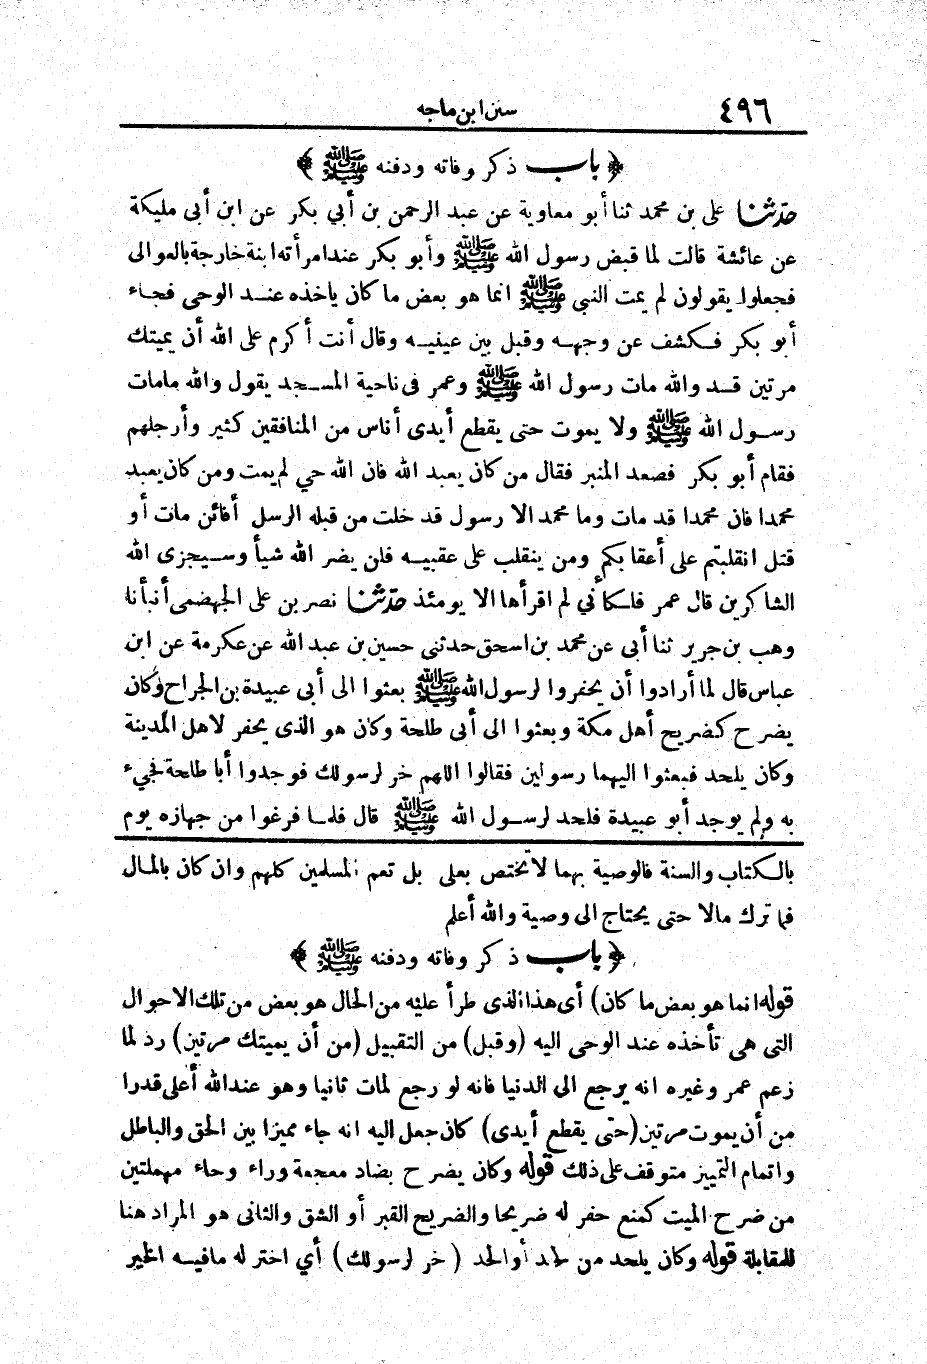 ٤٩٦ سنن ابن ماجه
﴿ باب ذكر وفاته ودفنه ﷺ ﴾
حدثنا على بن محمد ثنا أبو معاوية عن عبد الرحمن بن أبي بكر عن ابن أبى مليكة
عن عائشة قالت لما قبض رسول الله ﷺ وأبو بكر عند امرأته ابنة خارجة بالعوالى
فجعلوا يقولون لم يمت النبي ﷺ انما هو بعض ما كان يأخذه عند الوحى فجاء
أبو بكر فكشف عن وجهه وقبل بين عينيه وقال أنت أكرم على الله أن يميتك
مرتين قد والله مات رسول الله ﷺ وعمر فى ناحية المسجد يقول والله مامات
رسول الله ﷺ ولا يموت حتى يقطع أيدى أناس من المنافقين كثير وأرجلهم
فقام أبو بكر فصعد المنبر فقال من كان يعبد الله فان الله حي لم يمت ومن كان يعبد
محمدا فان محمدا قد مات وما محمد الا رسول قد خلت من قبله الرسل أفائن مات أو
قتل انقلبتم على أعقابكم ومن ينقلب على عقبيه فلن يضر الله شيأ وسيجزى الله
الشاكرين قال عمر فلكأني لم اقرأها الا يومئذ حدثنا نصر بن على الجهضمى أنبأنا
وهب بن جرير ثنا أبى عن محمد بن اسحق حدثنى حسين بن عبد الله عن عكرمة عن ابن
عباس قال لما أرادوا أن يحفروا لرسول الله ﷺ بعثوا الى أبى عبيدة بن الجراح وكان
يضرح كضريح أهل مكة وبعثوا الى أبى طلحة وكان هو الذى يحفر لاهل المدينة
وكان يلحد فبعثوا اليهما رسولين فقالوا اللهم خر لرسولك فوجدوا أبا طلحة فجيء
به ولم يوجد أبو عبيدة فلحد لرسول الله ﷺ قال فلما فرغوا من جهازه يوم
بالكتاب والسنة فالوصية بهما لا تختص بعلى بل تعم المسلمين كلهم وان كان بالمال
فما ترك مالا حتى يحتاج الى وصية والله أعلم
﴿ باب ذكر وفاته ودفنه ﷺ ﴾
قوله انما هو بعض ما كان) أى هذا الذى طرأ عليه من الحال هو بعض من تلك الاحوال
التى هى تأخذه عند الوحى اليه (وقبل) من التقبيل (من أن يميتك مرتين) رد لما
زعم عمر وغيره انه يرجع الى الدنيا فانه لو رجع لمات ثانيا وهو عند الله أعلى قدرا
من أن يموت مرتين (حتى يقطع أيدى) كان جعل اليه انه جاء مميزا بين الحق والباطل
واتمام التمييز متوقف على ذلك قوله وكان يضرح بضاد معجمة وراء وحاء مهملتين
من ضرح الميت كمنع حفر له ضريحا والضريح القبر أو الشق والثانى هو المراد هنا
للمقابلة قوله وكان يلحد من لحد أو الحد (خر لرسولك) أي اختر له مافيه الخير